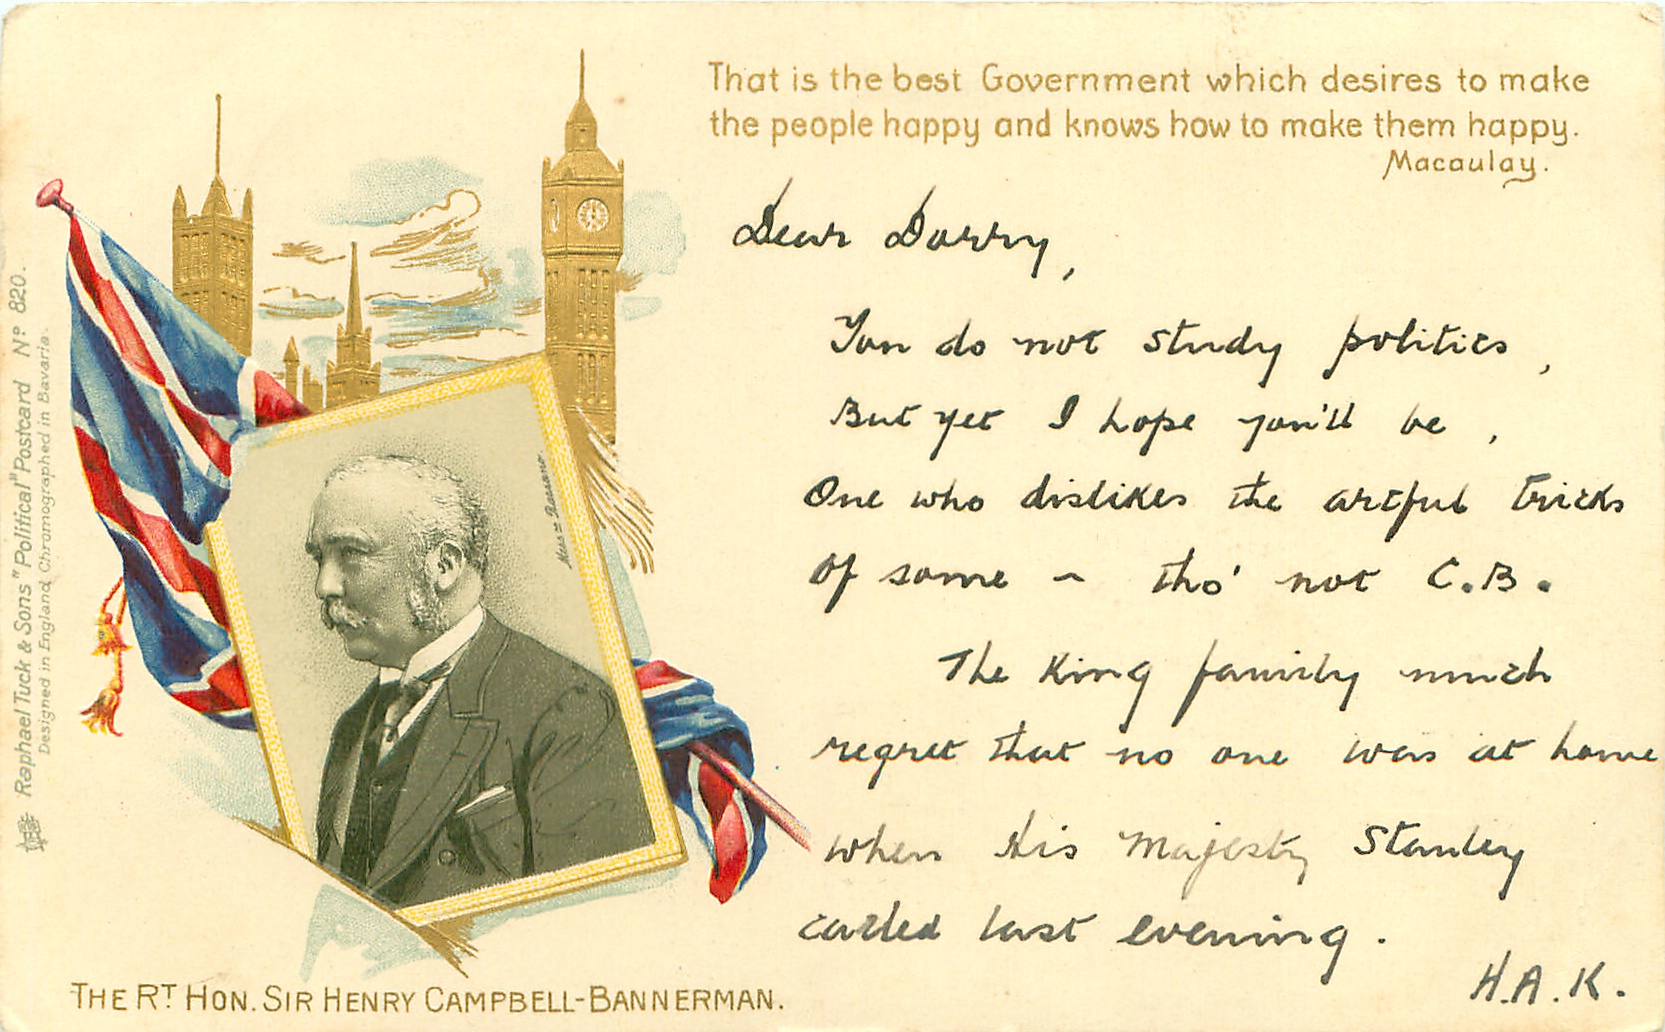 That is the best Government which desires to make
the people happy and knows how to make them happy.
Macaulay.
Dear Dorry,
You do not study politics,
But yet I hope you'll be,
One who dislikes the artful tricks
Of some - tho' not C.B.
The King family much
regret that no one was at home
when His Majesty Stanley
called last evening.
H.A.K.
THE RT HON. SIR HENRY CAMPBELL-BANNERMAN.
Raphael Tuck & Sons "Political" Postcard No 820.
Designed in England, Chromographed in Bavaria.